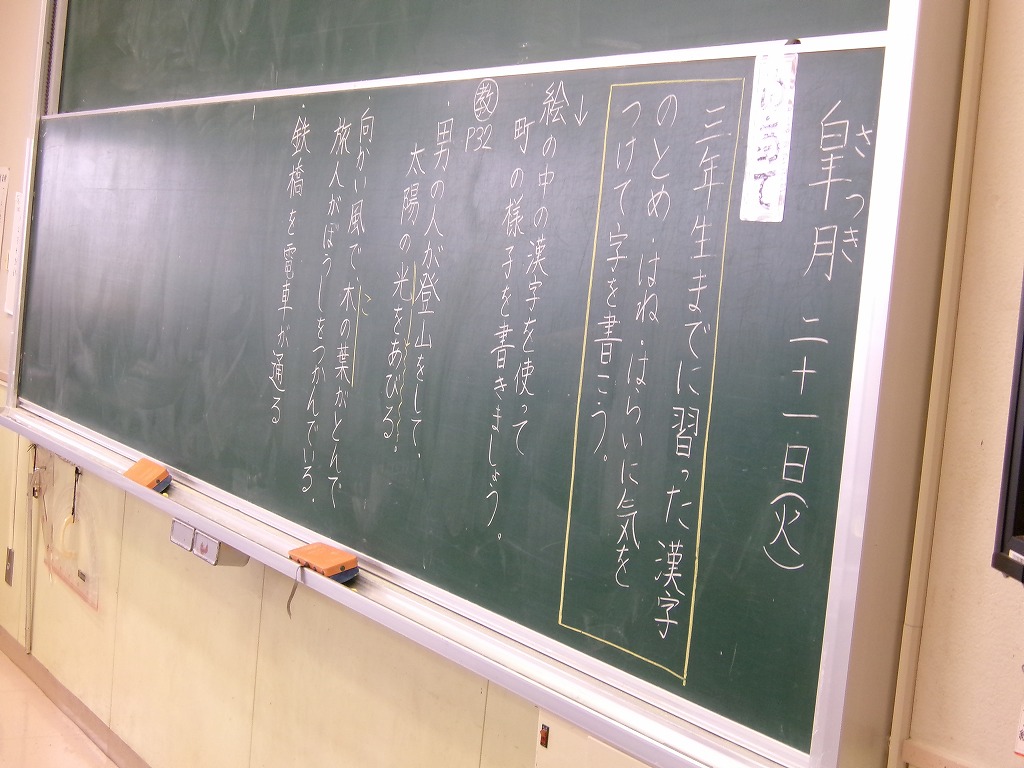 皐月 二十一日(火)
さつき
三年生までに習った漢字
のとめ・はね・はらいに気を
つけて字を書こう。
↓
絵の中の漢字を使って
町の様子を書きましょう。
教 P32
・男の人が登山をして、
太陽の光をあびる。
・向かい風で木の葉がとんで、
・旅人がぼうしをつかんでいる。
・鉄橋を電車が通る